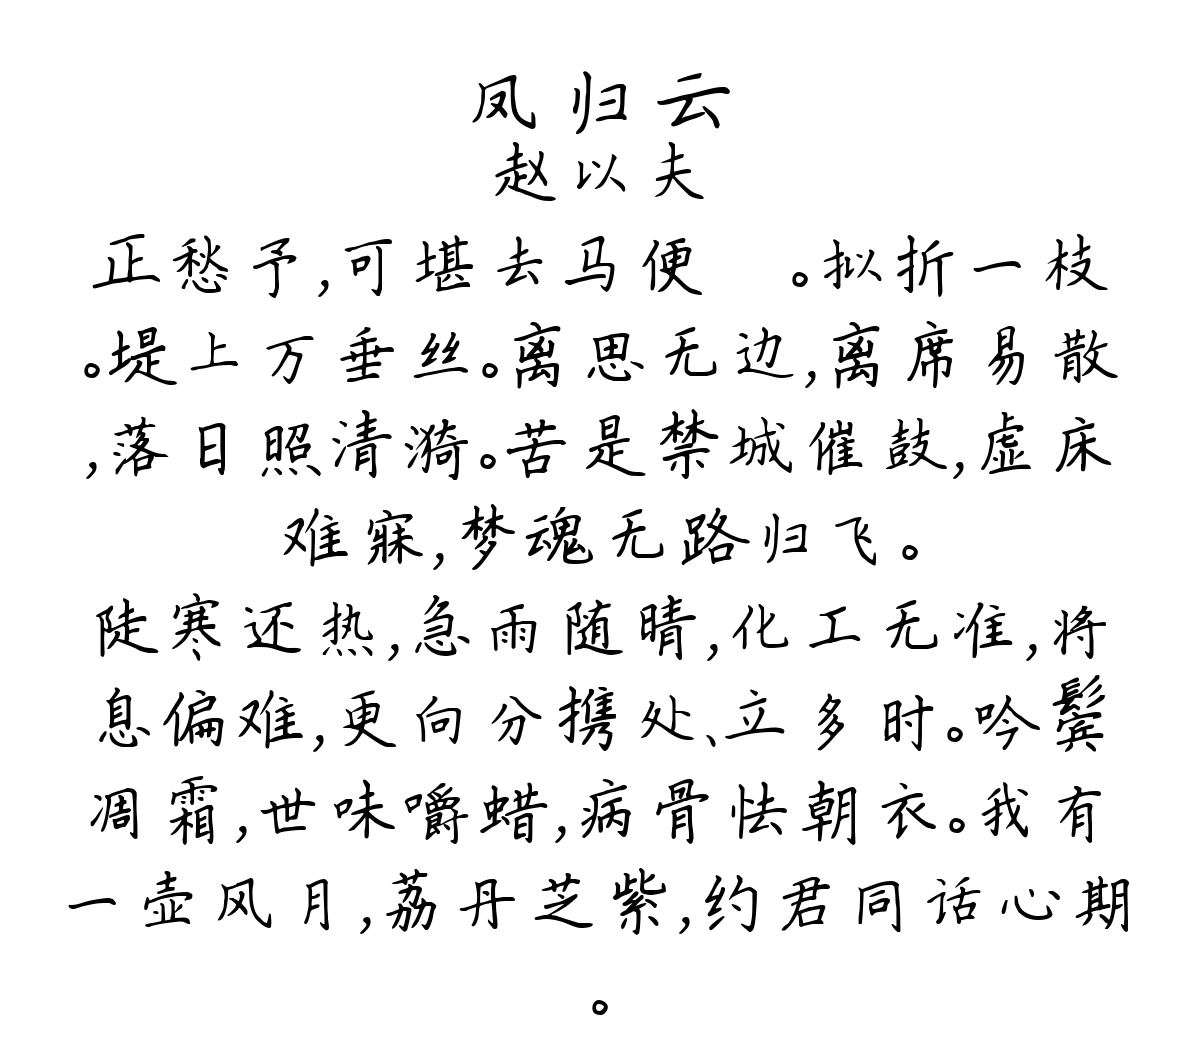 凤归云
赵以夫
正愁予,可堪去马便　。拟折一枝
。堤上万垂丝。离思无边,离席易散
,落日照清漪。苦是禁城催鼓,虚床
难寐,梦魂无路归飞。
陡寒还热,急雨随晴,化工无准,将
息偏难,更向分携处、立多时。吟鬓
凋霜,世味嚼蜡,病骨怯朝衣。我有
一壶风月,荔丹芝紫,约君同话心期
。